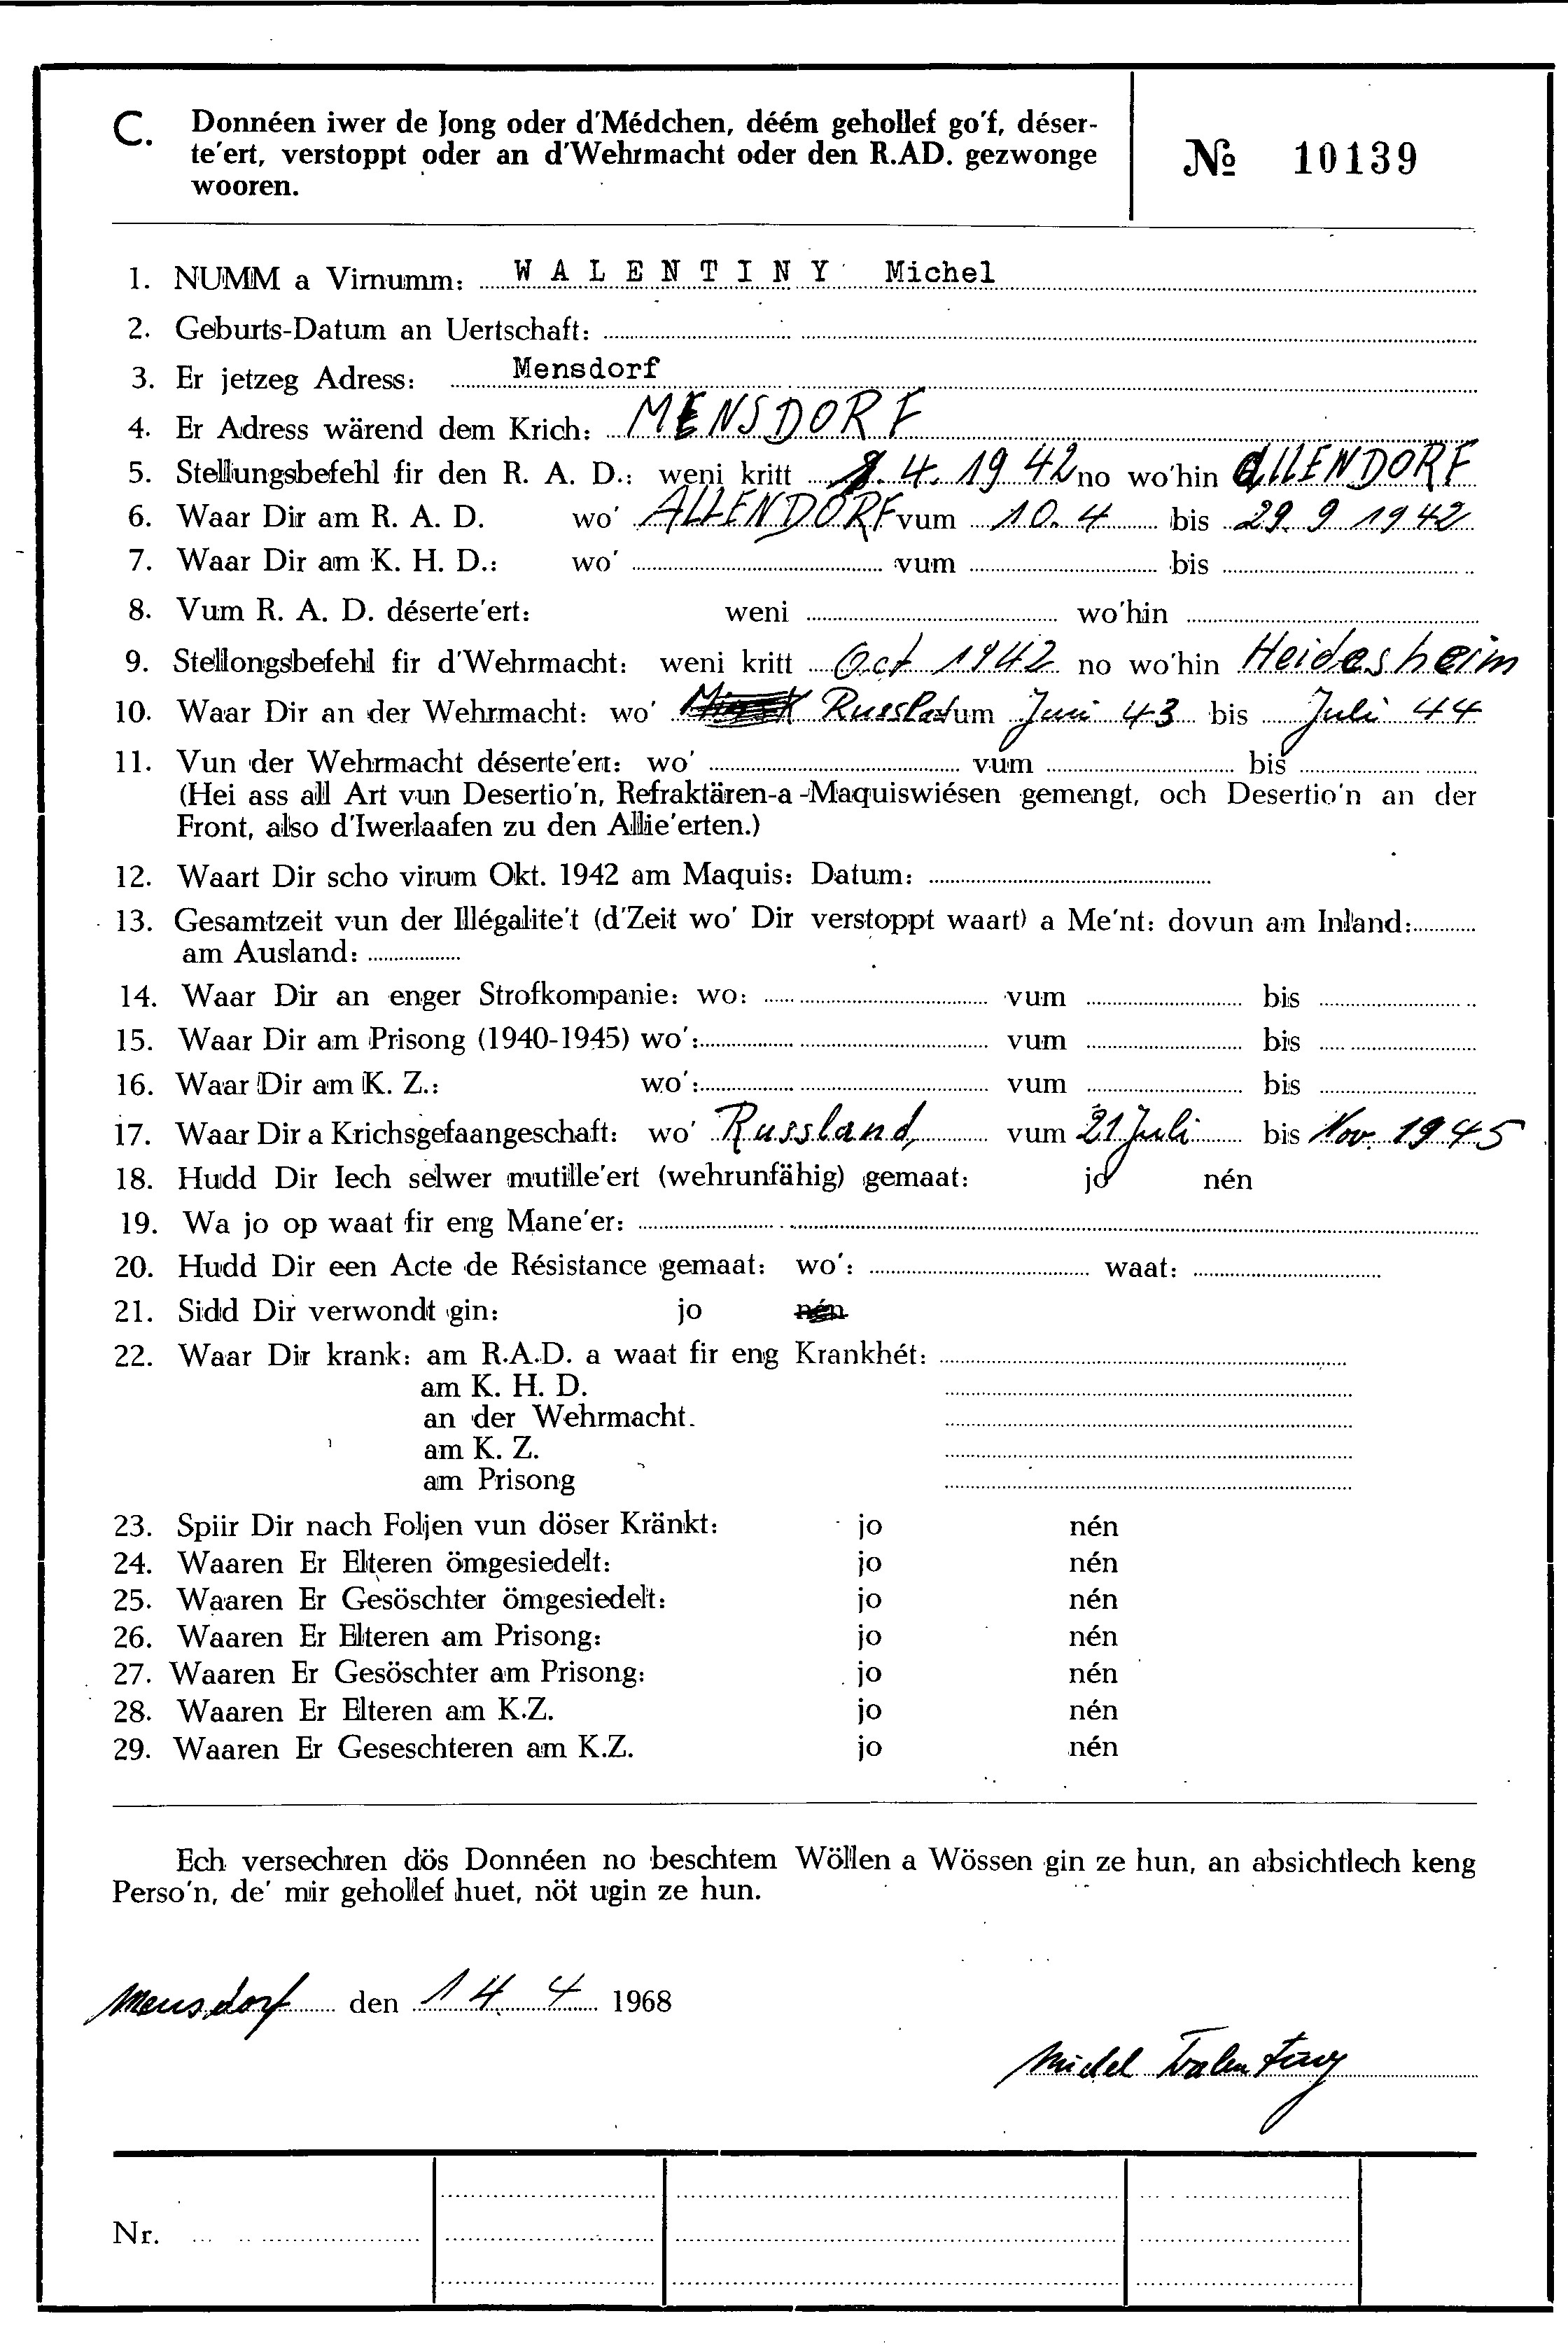 C. Donnéen iwer de Jong oder d'Médchen, déém gehollef go'f, déser-
te'ert, verstoppt oder an d'Wehrmacht oder den R.AD. gezwonge
wooren.
№ 10139
1. NUMM a Virnumm: WALENTINY Michel
2. Geburts-Datum an Uertschaft:
3. Er jetzeg Adress: Mensdorf
4. Er Adress wärend dem Krich: MENSDORF
5. Stellungsbefehl fir den R. A. D.: weni kritt 8.4.1942 no wo'hin ALLENDORF
6. Waar Dir am R. A. D. wo' ALLENDORF vum 10.4 bis 29.9 1942
7. Waar Dir am K. H. D.: wo' vum bis
8. Vum R. A. D. déserte'ert: weni wo'hin
9. Stellongsbefehl fir d'Wehrmacht: weni kritt Oct 1942 no wo'hin Heidesheim
10. Waar Dir an der Wehrmacht: wo' Russland vum Juni 43 bis Juli 44
11. Vun der Wehrmacht déserte'ert: wo' vum bis
(Hei ass all Art vun Desertio'n, Refraktären-a-Maquiswiésen gemengt, och Desertio'n an der
Front, also d'Iwerlaafen zu den Allie'erten.)
12. Waart Dir scho virum Okt. 1942 am Maquis: Datum:
13. Gesamtzeit vun der Illégalite't (d'Zeit wo' Dir verstoppt waart) a Me'nt: dovun am Inland:
am Ausland:
14. Waar Dir an enger Strofkompanie: wo: vum bis
15. Waar Dir am Prisong (1940-1945) wo': vum bis
16. Waar Dir am K. Z.: wo': vum bis
17. Waar Dir a Krichsgefaangeschaft: wo' Russland, vum 21 Juli bis Nov. 1945
18. Hudd Dir Iech selwer mutille'ert (wehrunfähig) gemaat: jo nén
19. Wa jo op waat fir eng Mane'er:
20. Hudd Dir een Acte de Résistance gemaat: wo': waat:
21. Sidd Dir verwondt gin: jo nén
22. Waar Dir krank: am R.A.D. a waat fir eng Krankhét:
am K. H. D.
an der Wehrmacht.
am K. Z.
am Prisong
23. Spiir Dir nach Foljen vun döser Kränkt: jo nén
24. Waaren Er Elteren ömgesiedelt: jo nén
25. Waaren Er Gesöschter ömgesiedelt: jo nén
26. Waaren Er Elteren am Prisong: jo nén
27. Waaren Er Gesöschter am Prisong: jo nén
28. Waaren Er Elteren am K.Z. jo nén
29. Waaren Er Geseschteren am K.Z. jo nén
Ech versechren dös Donnéen no beschtem Wöllen a Wössen gin ze hun, an absichtlech keng
Perso'n, de' mir gehollef huet, nöt ugin ze hun.
Mensdorf den 14. 4 1968
Michel Walentiny
Nr.